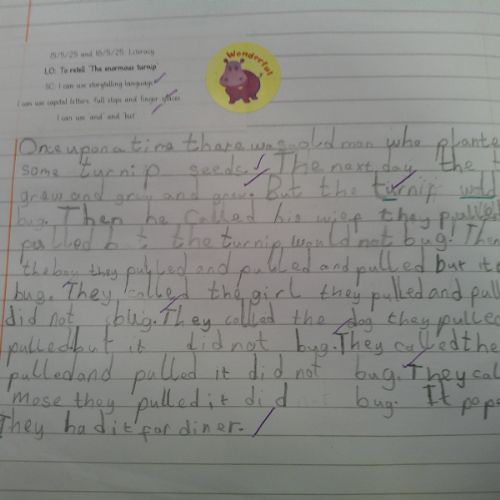 15/5/25 and 16/5/25 Literacy
LO: To retell 'The enormous turnip'
SC: I can use storytelling language
I can use capital letters, full stops and finger spaces
I can use 'and' and 'but'
Wonderful
Once upon a time thare was old man who plante
some turnip seeds. The next day the t
grew and grew and grew. But the turnip wold
bug. Then he called his wief they pulled
pulled but the turnip would not bug. Then
the boy they pulled and pulled and pulled but it
bug. They called the girl they pulled and pull
did not bug. They called the dog they pulled
pulled but it did not bug. They called the
pulled and pulled it did not bug. They cal
mose they pulled it did not bug. It pope
They had it for diner.